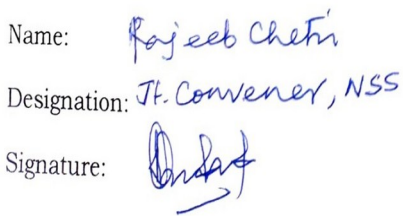 Name: Rajeeb Chetri
Designation: Jt. Convener, NSS
Signature: